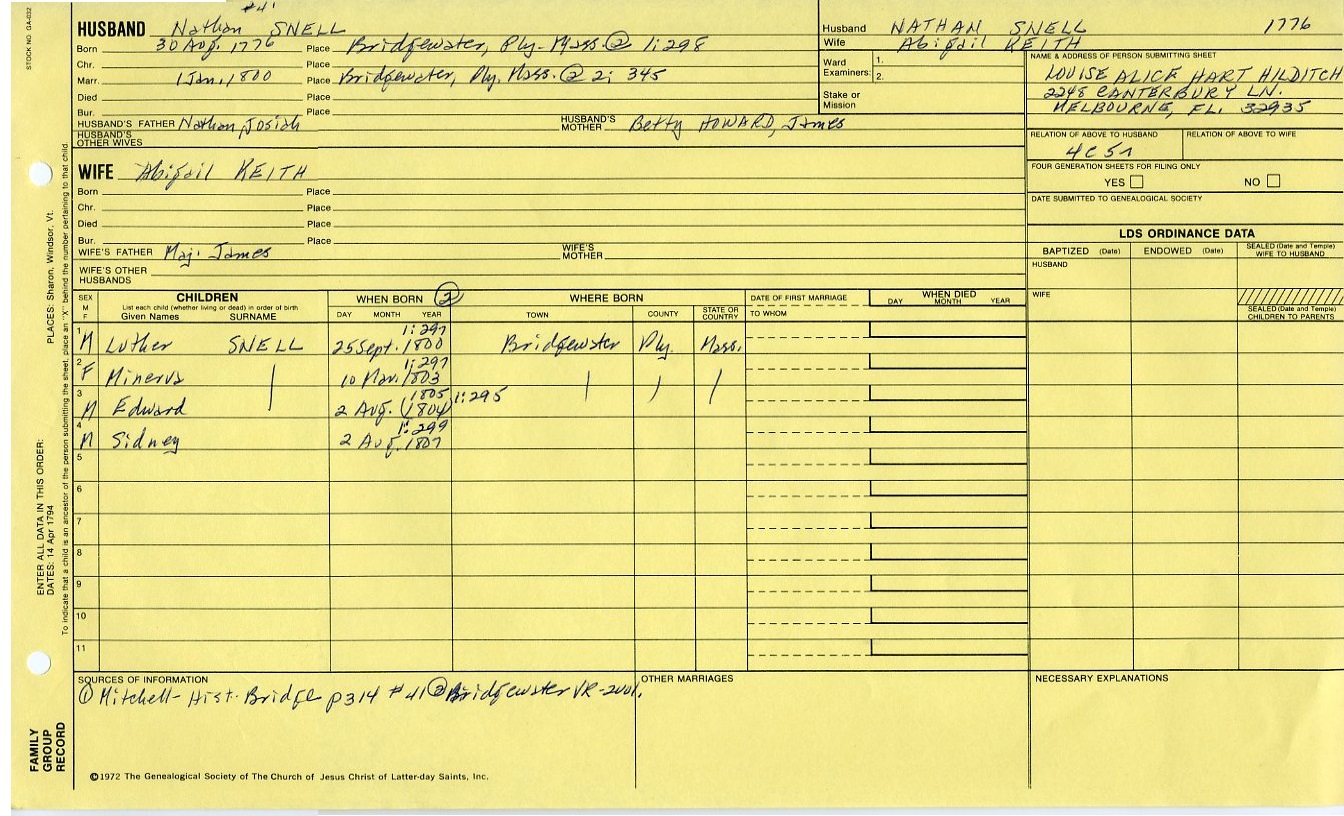 #41
HUSBAND Nathan SNELL
Born 30 Aug. 1776 Place Bridgewater, Ply. Mass. ② 1:298
Chr. Place
Marr. 1 Jan. 1800 Place Bridgewater, Ply. Mass. ② 2: 345
Died Place
Bur. Place
HUSBAND'S FATHER Nathan, Josiah HUSBAND'S MOTHER Betty HOWARD, James
HUSBAND'S OTHER WIVES
WIFE Abigail KEITH
Born Place
Chr. Place
Died Place
Bur. Place
WIFE'S FATHER Maj. James WIFE'S MOTHER
WIFE'S OTHER HUSBANDS
Husband NATHAN SNELL 1776
Wife Abigail KEITH
Ward Examiners: 1.
2.
Stake or Mission
NAME & ADDRESS OF PERSON SUBMITTING SHEET
LOUISE ALICE HART HILDITCH
2248 CANTERBURY LN.
MELBOURNE, FL. 32935
RELATION OF ABOVE TO HUSBAND RELATION OF ABOVE TO WIFE
4C5r
FOUR GENERATION SHEETS FOR FILING ONLY
YES NO
DATE SUBMITTED TO GENEALOGICAL SOCIETY
LDS ORDINANCE DATA
BAPTIZED (Date) ENDOWED (Date) SEALED (Date and Temple) WIFE TO HUSBAND
HUSBAND
WIFE
SEALED (Date and Temple) CHILDREN TO PARENTS
SEX M F
CHILDREN
List each child (whether living or dead) in order of birth
Given Names SURNAME
WHEN BORN ②
DAY MONTH YEAR
WHERE BORN
TOWN COUNTY STATE OR COUNTRY
DATE OF FIRST MARRIAGE
TO WHOM
WHEN DIED
DAY MONTH YEAR
1:297
1 M Luther SNELL 25 Sept. 1800 Bridgewater Ply. Mass.
1:297
2 F Minerva 10 Mar. 1803
1805 1:295
3 M Edward 2 Aug. (1804)
1:299
4 M Sidney 2 Aug. 1807
5
6
7
8
9
10
11
SOURCES OF INFORMATION
① Mitchell- Hist. Bridge p314 #41 ② Bridgewater VR-2vol.
OTHER MARRIAGES
NECESSARY EXPLANATIONS
©1972 The Genealogical Society of The Church of Jesus Christ of Latter-day Saints, Inc.
STOCK NO. GA-032
ENTER ALL DATA IN THIS ORDER:
DATES: 14 Apr 1794
PLACES: Sharon, Windsor, Vt.
To indicate that a child is an ancestor of the person submitting the sheet, place an "X" behind the number pertaining to that child.
FAMILY
GROUP
RECORD